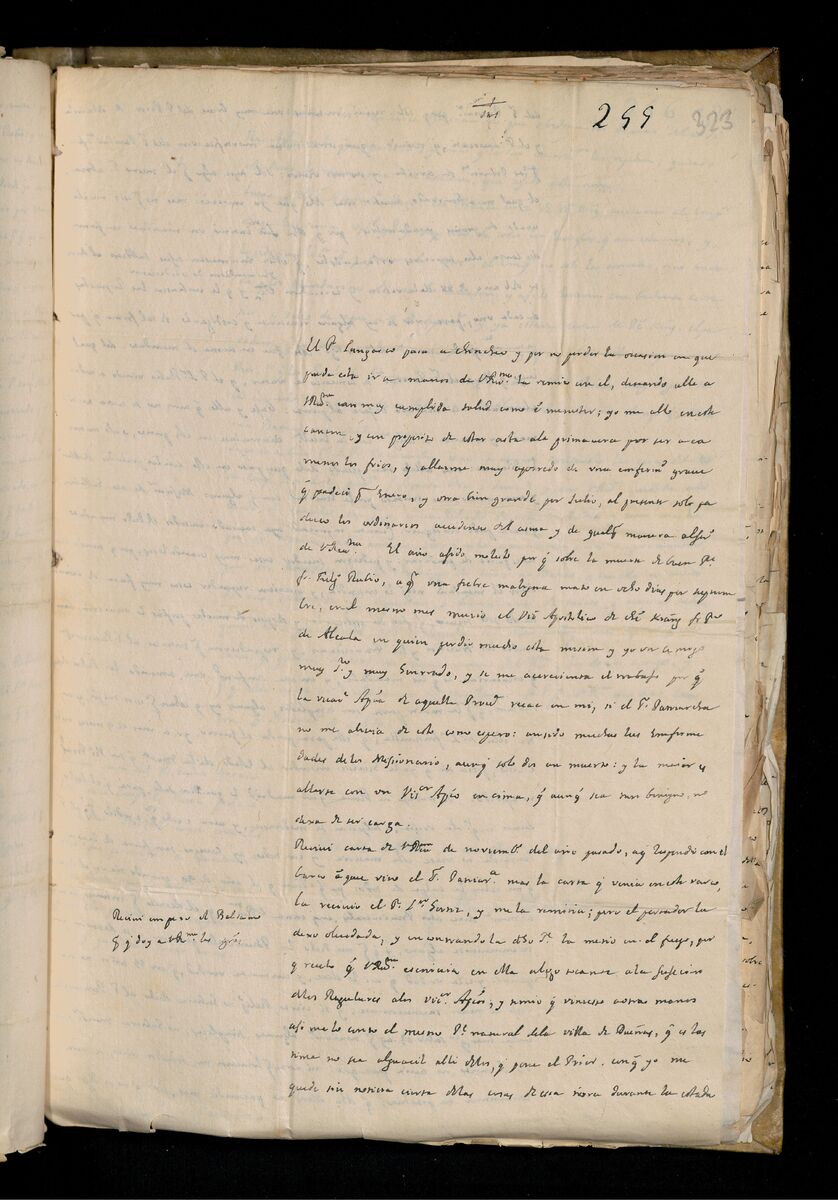 299 323
El P. Lungasco pasa a Chincheo y por no perder la ocasion en que
pueda esta ir a manos de VRma la remito en el, deseando alle a
VRma con muy cumplida salud como e menester; yo me allo en este
y con proposito de estar asta ala primavera por ser aca
menos los frios, y allarme muy aporreado de una enfermd grave
q padeci pr Enero, y otra bien grande por Julio, al presente solo pa
dezco los ordinarios accidentes del asma y de qualq manera
de VRma. El año a sido molesto por q sobre la muerte de buen Pe
fr. Rubio, a qn una fiebre maligna mato en ocho dias por septiem
bre, en el mesmo mes murio el Vico Apostolico de fr Po
de Alcala en quien perdio mucho esta mision y yo un amigo
muy y muy honrrado, y se me acrecienta el trabajo por q
la vicaria Appca de aquella Provca recae en mi, si el Sr Patriarcha
no me alivia de esto como espero: an sido muchas las enferme
dades de los Missionarios, aunq solo dos an muerto: y la maior es
allarse con un Vicor Appco encima, q aunq sea muy benigno, no
dexa de ser carga.
Recivi carta de VRma de noviembe del año pasado, a q respondi con el
barco en que vino el Sr Patriarca mas la carta q venia en este varco,
la recivio el Pe Sanz, y me la remitia; pero el portador la
dexo olvidada, y encontrandola dho Sr la metio en el fuego, por
q recelo q VRma escriviria en ella algo tocante ala sujecion
delos Regulares alos Vicos Appcos, y temio q viniesse a otras manos
asi me lo conto el mesmo Pe natural dela villa de Dueñas, q es las
tima no sea alguacil alli delos q pone el Prior. conq yo me
quede sin noticia cierta delas cosas de essa tierra durante la estada
Recivi un peso el Balsamo
q doy a VRma las gras